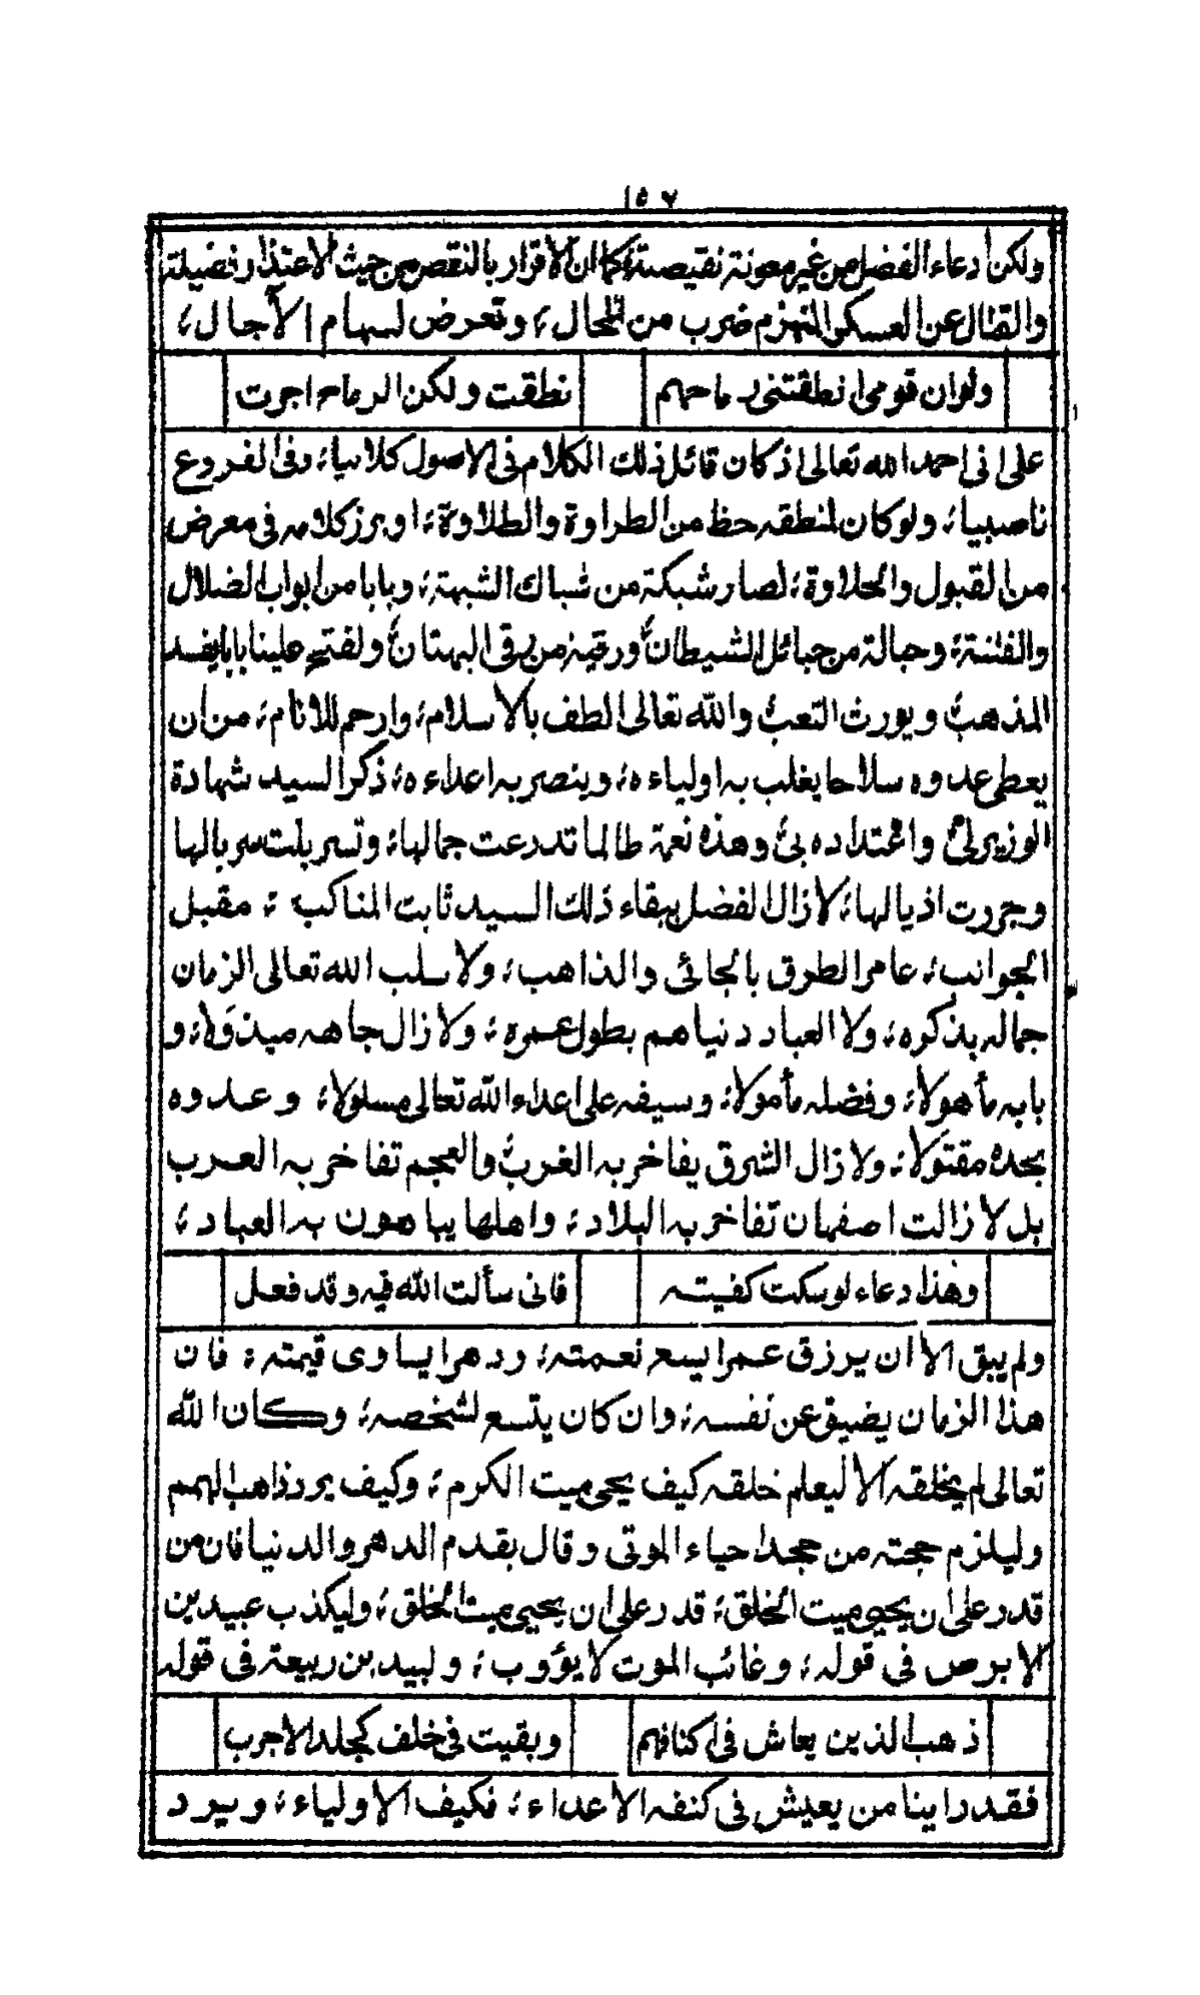 ١٥٧
ولكن ادعاء الفضل من غير معونة نقيصة؛ كما ان الاقرار بالنقص من حيث الاعتذار فضيلة
والقتال عن العسكر المنهزم ضرب من المحال؛ وتعرض لسهام الآجال؛
ولو ان قومى انطقتنى رماحهم نطقت ولكن الرماح اجرت
على انى احمد الله تعالى اذ كان قائل ذلك الكلام فى الاصول كلابيا؛ وفى الفروع
ناصبيا؛ ولو كان لمنطقه حظ من الطراوة والطلاوة؛ او برز كلامه فى معرض
من القبول والحلاوة؛ لصار شبكة من شباك الشبهة؛ وبابا من ابواب الضلال
والفتنة؛ وحبالة من حبائل الشيطان؛ ورقية من رقى البهتان؛ ولفتح علينا بابا يفسد
المذهب؛ ويورث التعب؛ والله تعالى الطف بالاسلام؛ وارحم للانام؛ من ان
يعطى عدوه سلاحا يغلب به اولياءه؛ وينصر به اعداءه؛ ذكر السيد شهادة
الوزير لى؛ واعتداده بى؛ وهذه نعمة طالما تدرعت جمالها؛ وتسربلت سربالها
وجررت اذيالها؛ لا زال الفضل ببقاء ذلك السيد ثابت المناكب ؛ مقبل
الجوانب؛ عامر الطرق بالجائى والذاهب؛ ولا سلب الله تعالى الزمان
جماله بذكره؛ ولا العباد دنياهم بطول عمره؛ ولا زال جاهه مبذولا؛ و
بابه مأهولا؛ وفضله مأمولا؛ وسيفه على اعداء الله تعالى مسلولا؛ وعدوه
بحده مقتولا؛ ولا زال الشرق يفاخر به الغرب؛ والعجم تفاخر به العرب
بل لا زالت اصفهان تفاخر به البلاد؛ واهلها يباهون به العباد؛
وهذا دعاء لو سكت كفيته فانى سألت الله فيه وقد فعل
ولم يبق الا ان يرزق عمرا يسع نعمته؛ ودهرا يساوى قيمته؛ فان
هذا الزمان يضيق عن نفسه؛ وان كان يتسع لشخصه؛ وكان الله
تعالى لم يخلقه الا ليعلم خلقه كيف يحيى ميت الكرم؛ وكيف يرد ذاهب الهمم
وليلزم حجته من جحد احياء الموتى وقال بقدم الدهر والدنيا فان من
قدر على ان يحيى ميت الخلق؛ قدر على ان يحيى ميت الخلق؛ وليكذب عبيد بن
الابرص فى قوله؛ وغائب الموت لا يؤوب؛ ولبيد بن ربيعة فى قوله
ذهب الذين يعاش فى اكنافهم وبقيت فى خلف كجلد الاجرب
فقد راينا من يعيش فى كنفه الاعداء؛ فكيف الاولياء؛ ويرد